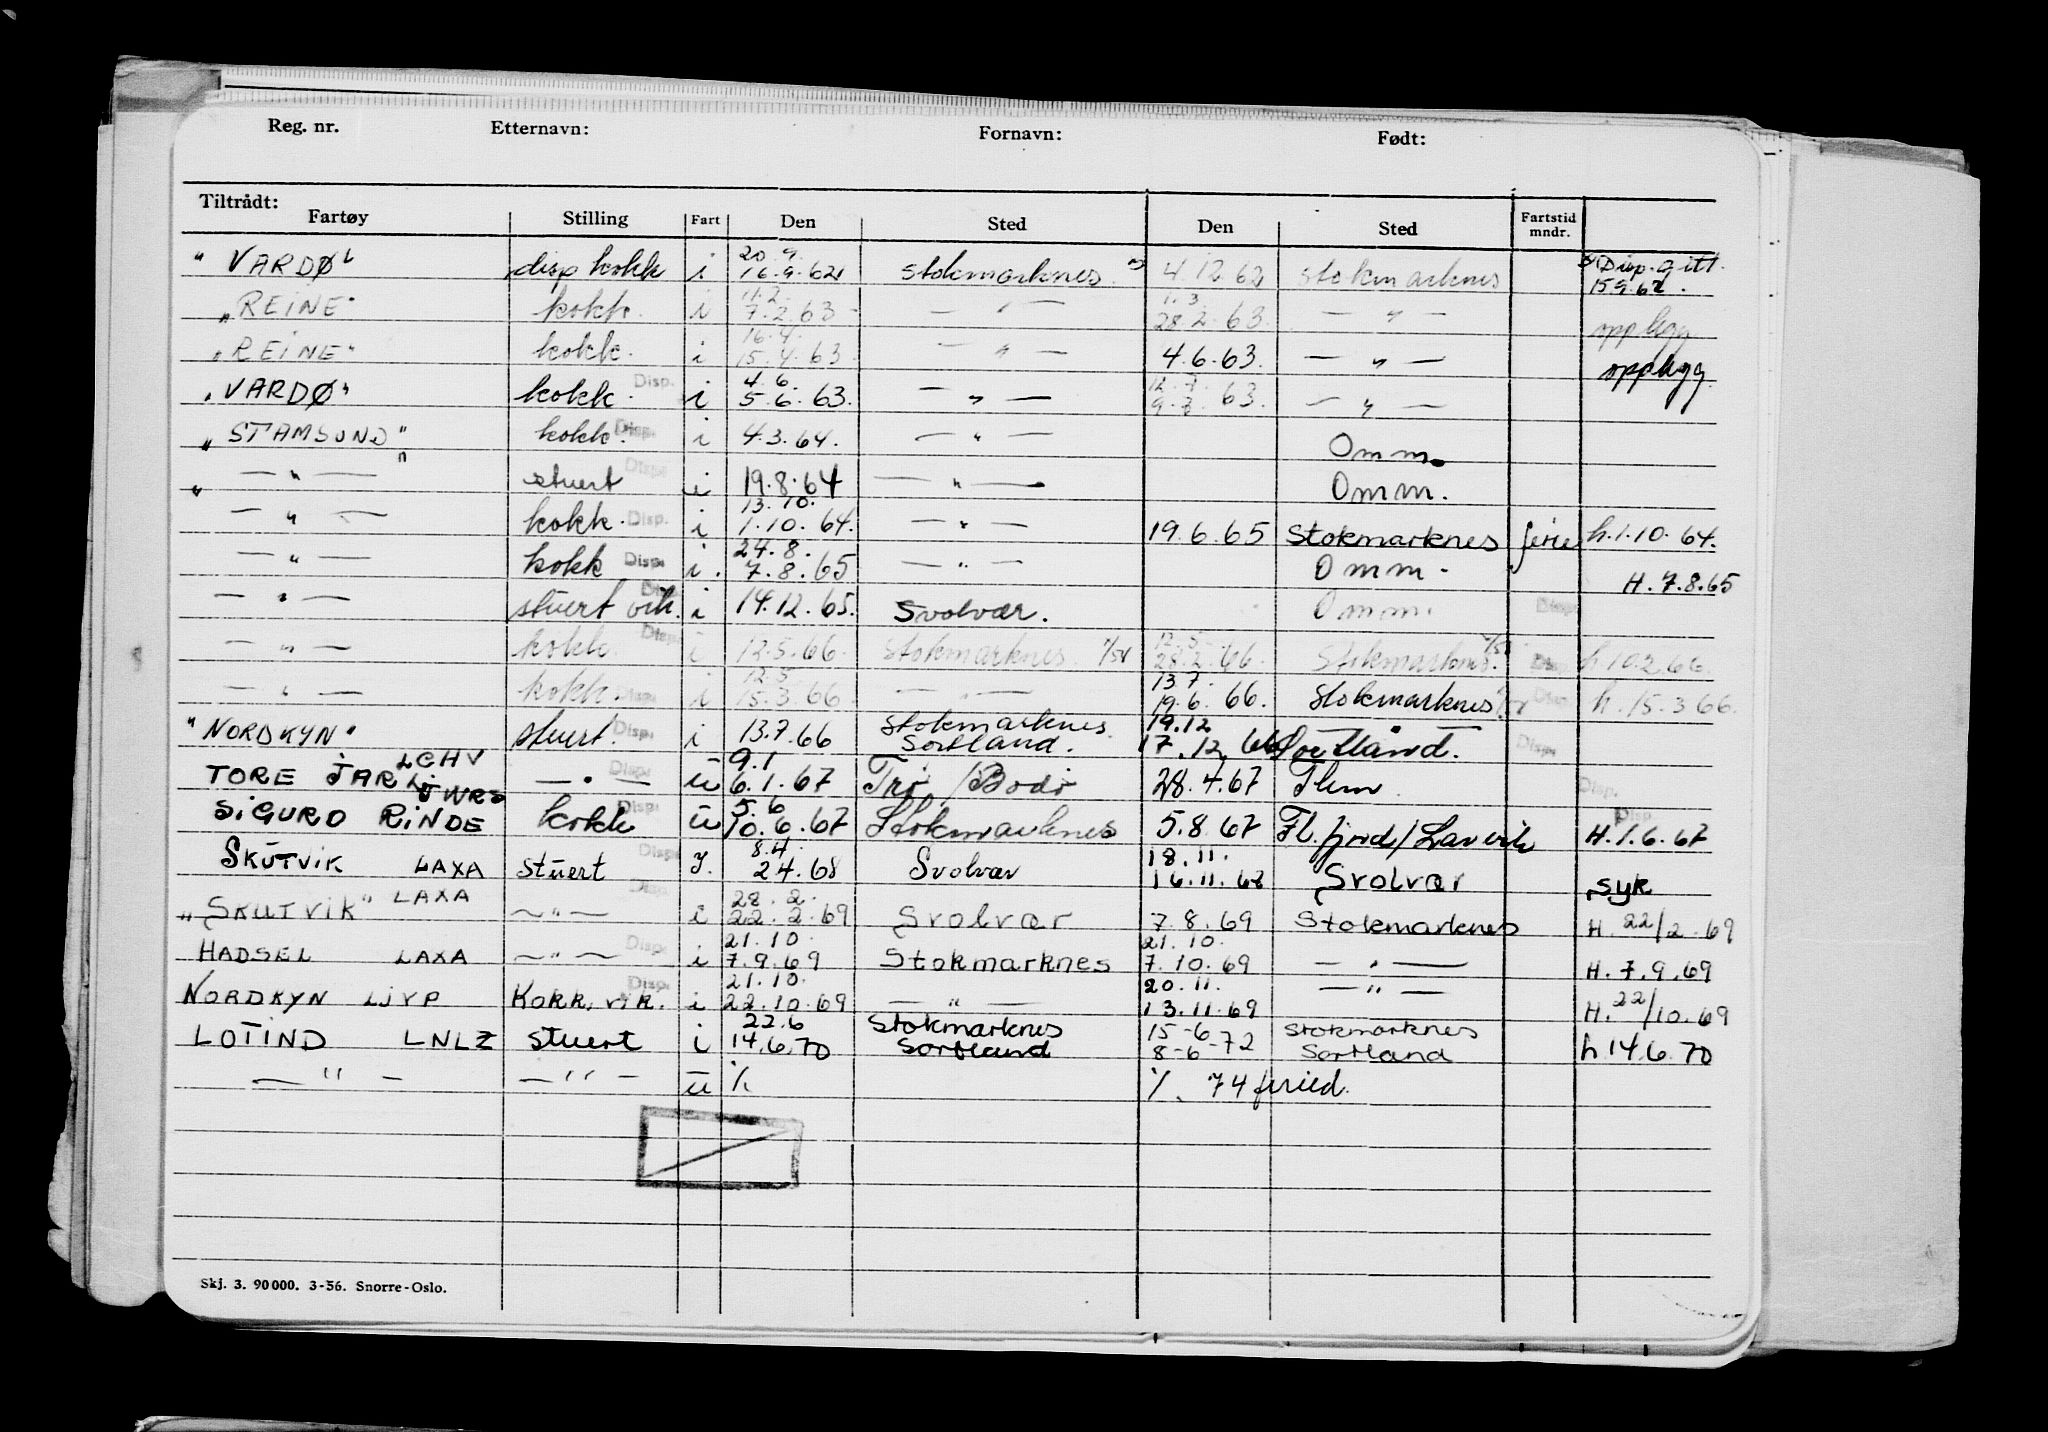 Reg. nr. Etternavn: Fornavn: Født:
Tiltrådt:
Fartøy Stilling Fart Den Sted Den Sted Fartstid mndr.
20.9.
"VARDØ" disp kokk i 16.9.62 Stokmarknes 4.12.62 Stokmarknes Disp. gitt. 15.9.62.
11.2. 1.3.
"REINE" kokk. i 7.2.63 — " — 28.2.63. — " — opplegg
16.4.
"REINE" kokk. i 15.4.63. — " — 4.6.63. — " — opplegg.
4.6. 12.7.
"VARDØ" kokk. Disp. i 5.6.63. — " — 9.7.63. — " —
"STAMSUND" kokk. Disp. i 4.3.64. — " — Omm.
— " — stuert Disp. i 19.8.64 — " — Omm.
13.10.
— " — kokk. Disp. i 1.10.64. — " — 19.6.65 Stokmarknes ferie h.1.10.64.
24.8.
— " — kokk Disp. i. 7.8.65 — " — Omm. H.7.8.65
— " — stuert vik. Disp. i 14.12.65. Svolvær. Omm. Disp.
12.5.
— " — kokk. Disp. i 12.5.66. Stokmarknes 28.2.66. Stokmarknes. Disp. h.10.2.66.
12.5 13.7.
— " — kokk. Disp. i 15.3.66. — " — 19.6.66. Stokmarknes Disp. h.15.3.66.
Stokmarknes. 19.12
"NORDKYN" stuert. Disp. i 13.7.66 Sortland. 17.12.66 Sortland. Disp.
LCHV 9.1
TORE JARL JWRS — " — Disp. u 6.1.67 Trø/Bodø 28.4.67 Thm. Disp.
5.6
SIGURD RINDE kokk Disp. u 10.6.67 Stokmarknes 5.8.67 Fl.fjord/Larvik Disp. H.1.6.67
8.4. 18.11.
SKUTVIK LAXA stuert Disp. I. 2.4.68 Svolvær 16.11.68 Svolvær syk
28.2.
"SKUTVIK" LAXA — " — Disp. i 22.2.69 Svolvær 7.8.69 Stokmarknes H.22/2.69
21.10. 21.10.
HADSEL LAXA — " — Disp. i 7.9.69 Stokmarknes 7.10.69 — " — H.7.9.69
21.10. 20.11.
NORDKYN LJVP Kokk, vik. Disp. i 22.10.69 — " — 13.11.69 — " — H.22/10.69
22.6 Stokmarknes 15-6- Stokmarknes
LOTIND LNLZ stuert i 14.6.70 Sortland 8-6-72 Sortland h 14.6.70
— " — — " — u ./. ./. 74 feried.
Skj. 3. 90000. 3-56. Snorre-Oslo.